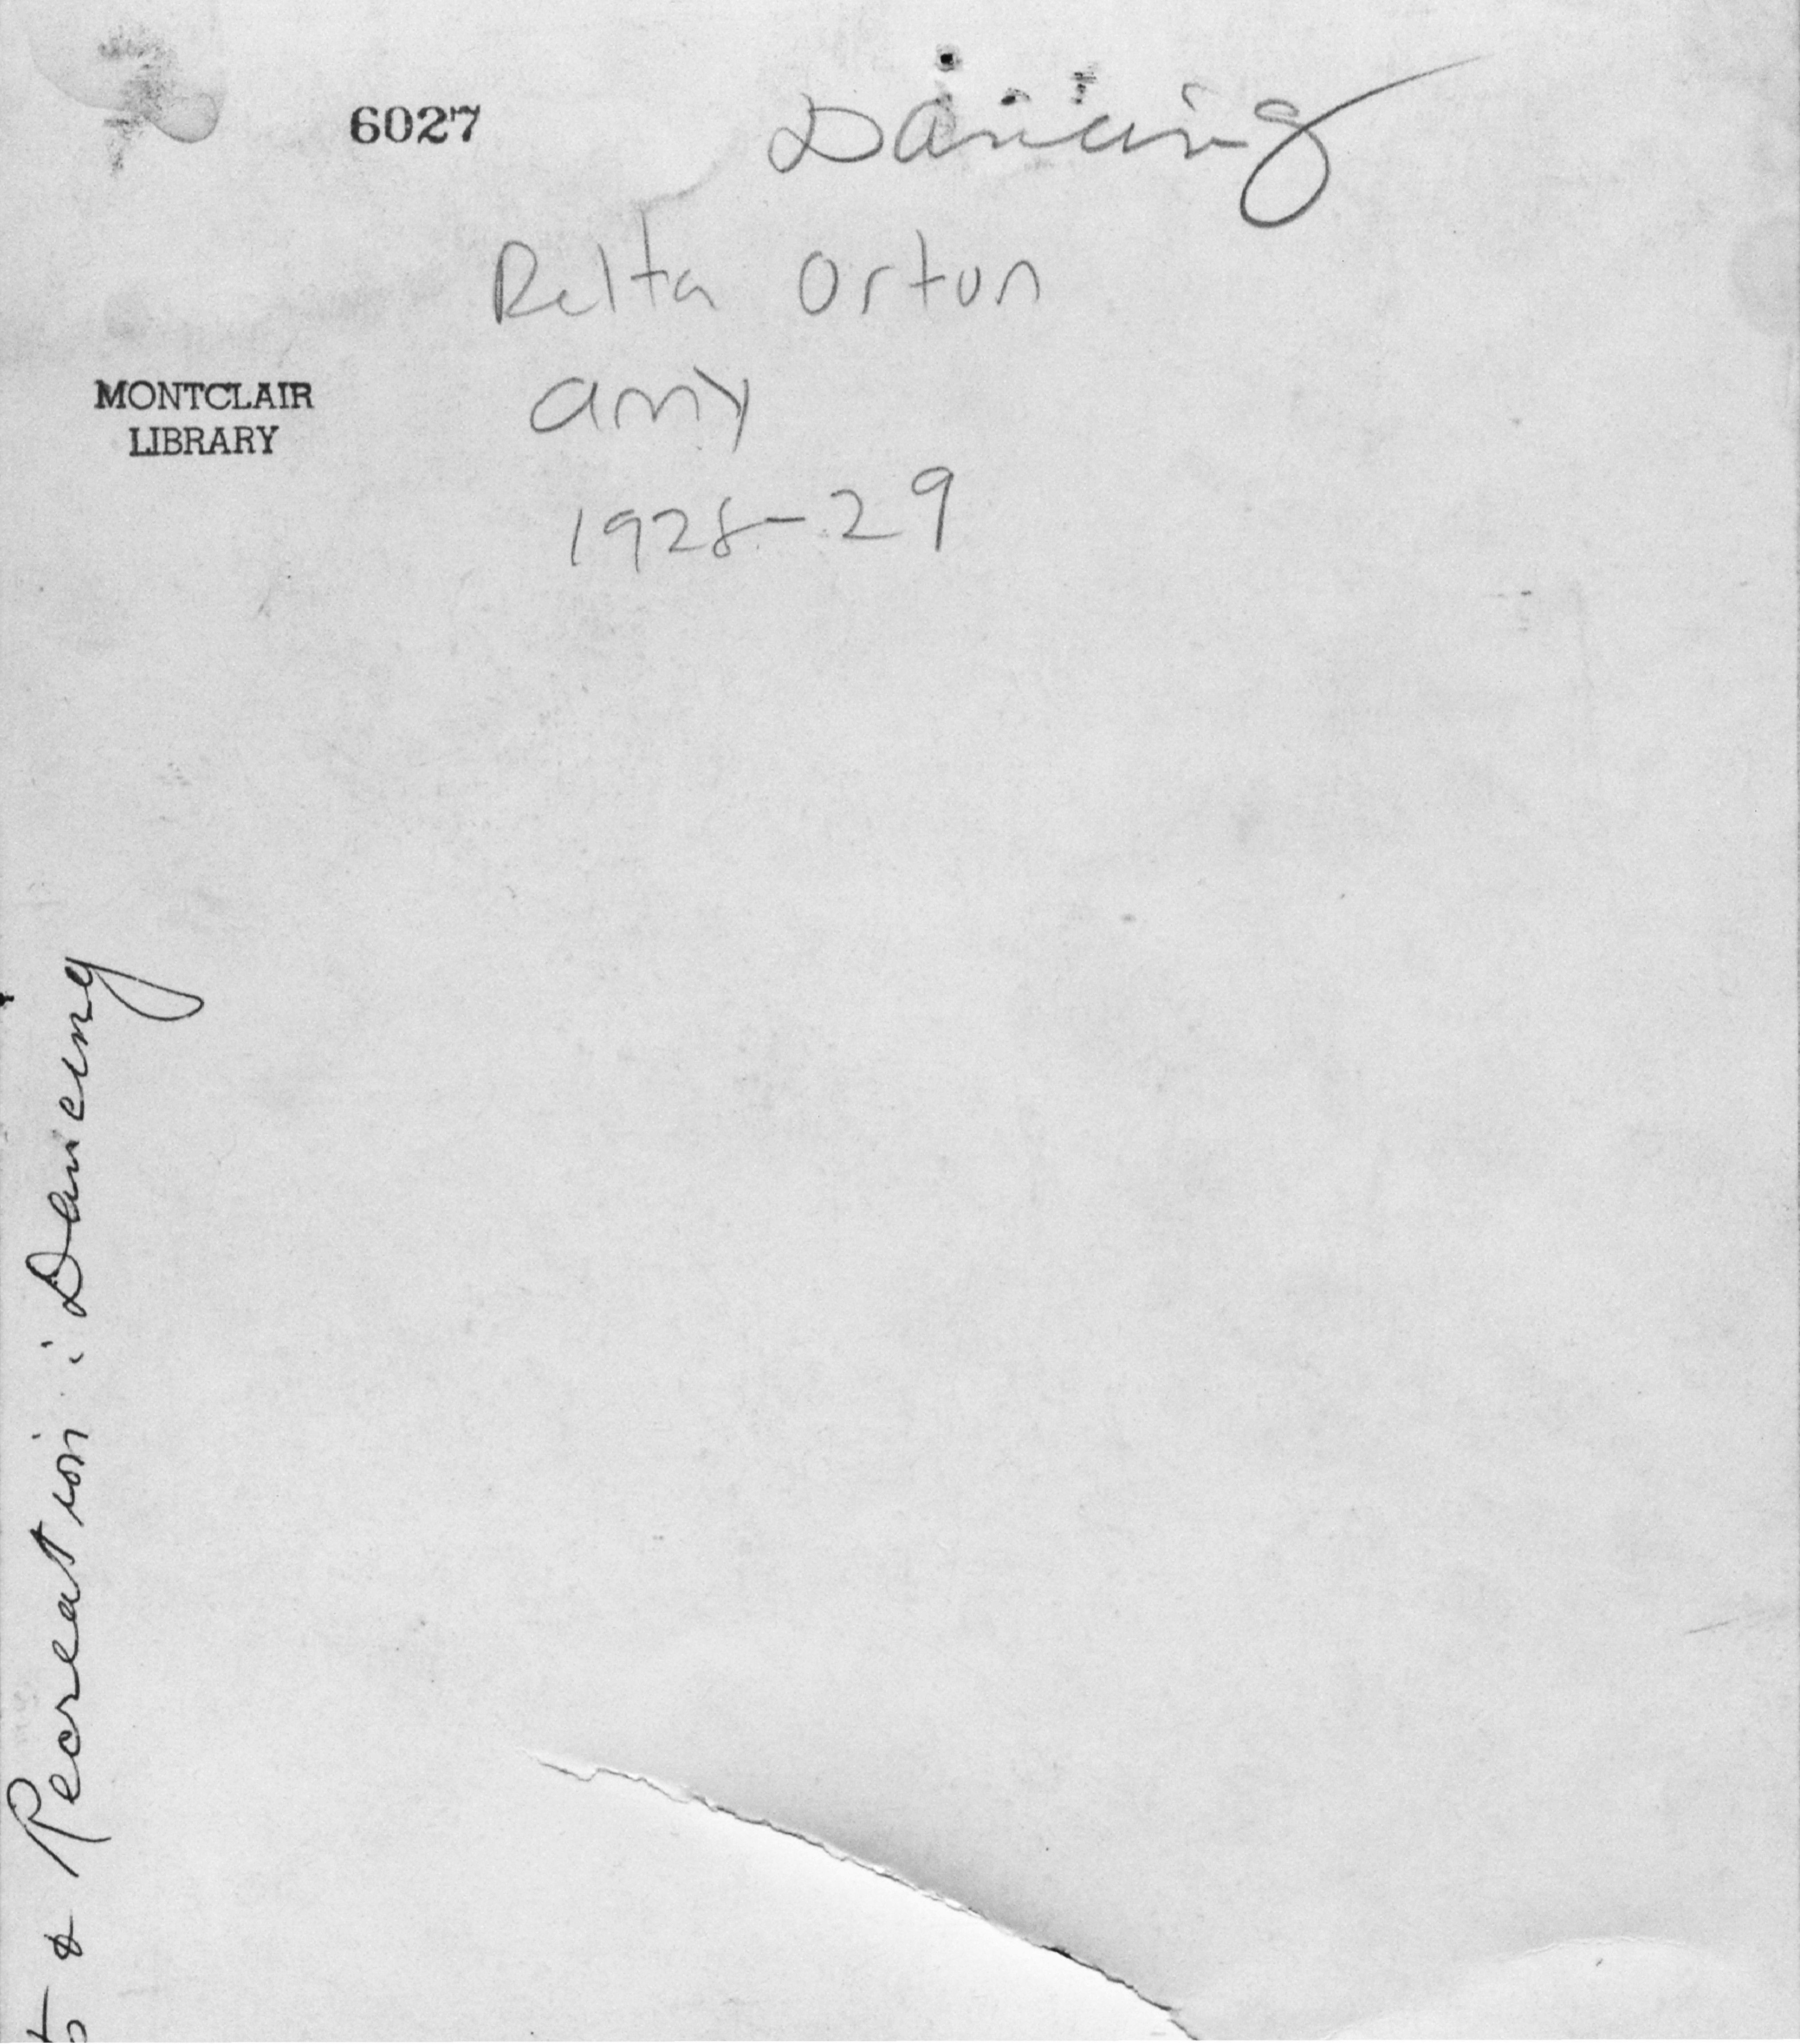 6027
Dancing
Relta Orton
amy
1928-29
MONTCLAIR
LIBRARY
& Recreation: Dancing